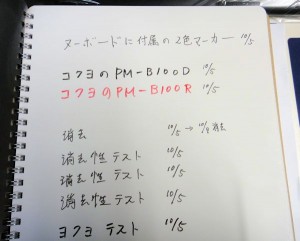 ヌーボードに付属の2色マーカー 10/5
コクヨのPM-B100D 10/5
コクヨのPM-B100R 10/5
消去 10/5 → 10/9 消去
消去性テスト 10/5
消去性テスト 10/5
消去性テスト 10/5
ヨクヨテスト 10/5